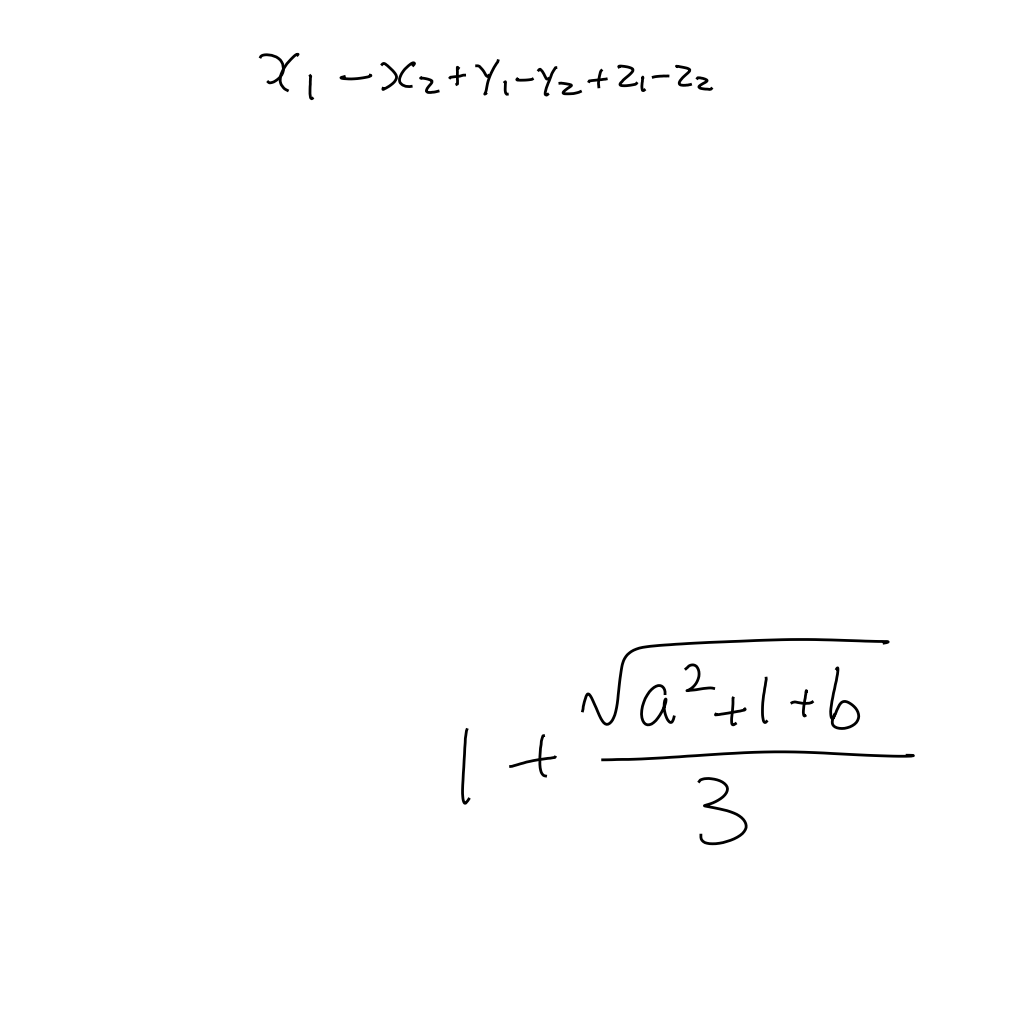 x₁ - x₂ + y₁ - y₂ + z₁ - z₂
1 + \frac{\sqrt{a^2 + 1 + b}}{3}